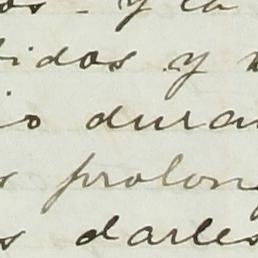 os - y la
tidos y
io duran
s prolong
s darles